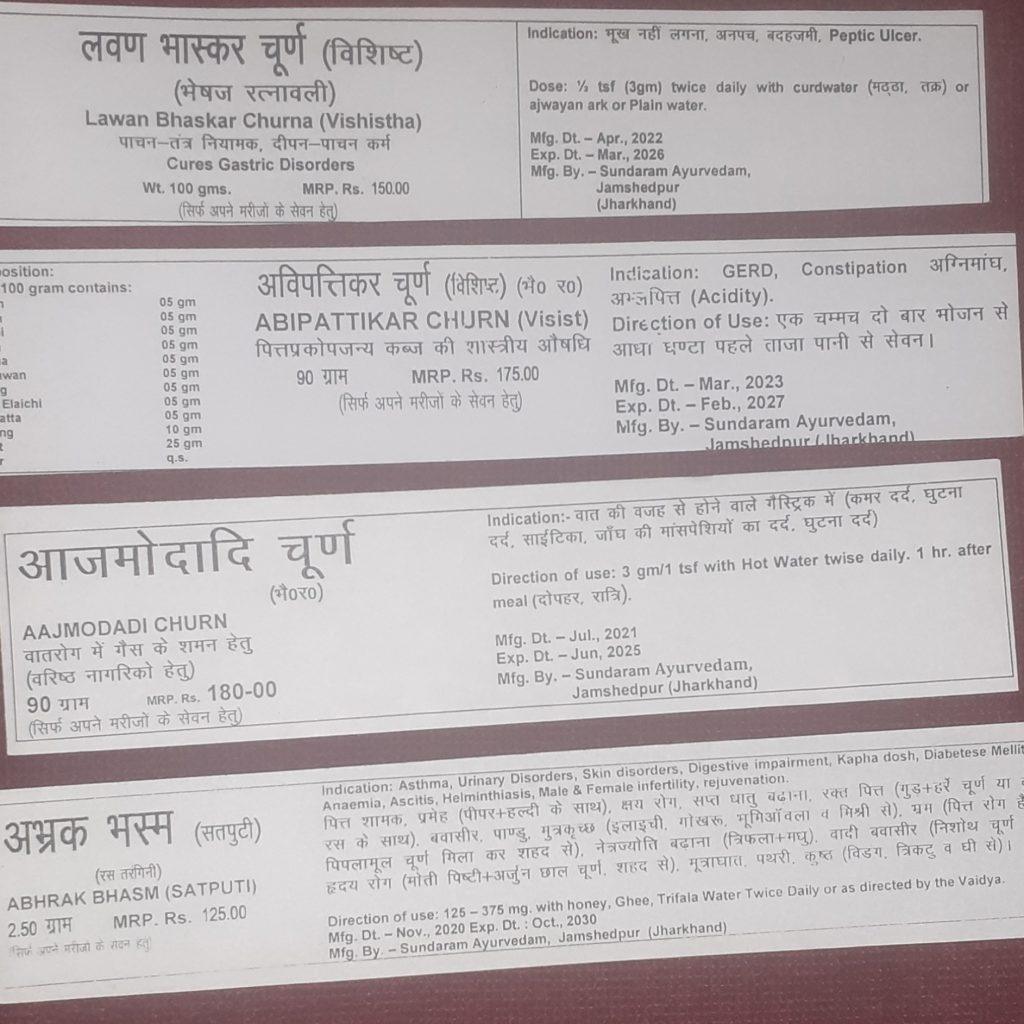 लवण भास्कर चूर्ण (विशिष्ट)
(भेषज रत्नावली)
Lawan Bhaskar Churna (Vishistha)
पाचन–तंत्र नियामक, दीपन–पाचन कर्म
Cures Gastric Disorders
Wt. 100 gms. MRP. Rs. 150.00
(सिर्फ अपने मरीजों के सेवन हेतु)
Indication: भूख नहीं लगना, अनपच, बदहजमी, Peptic Ulcer.
Dose: ½ tsf (3gm) twice daily with curdwater (मट्ठा, तक्र) or
ajwayan ark or Plain water.
Mfg. Dt. – Apr., 2022
Exp. Dt. – Mar., 2026
Mfg. By. – Sundaram Ayurvedam,
Jamshedpur
(Jharkhand)
osition:
100 gram contains:
05 gm
05 gm
05 gm
05 gm
a 05 gm
wan 05 gm
g 05 gm
Elaichi 05 gm
atta 05 gm
ng 10 gm
t 25 gm
r q.s.
अविपत्तिकर चूर्ण (विशिष्ट) (भै० र०)
ABIPATTIKAR CHURN (Visist)
पित्तप्रकोपजन्य कब्ज की शास्त्रीय औषधि
90 ग्राम MRP. Rs. 175.00
(सिर्फ अपने मरीजों के सेवन हेतु)
Indication: GERD, Constipation अग्निमांघ,
अम्लपित्त (Acidity).
Direction of Use: एक चम्मच दो बार भोजन से
आधा घण्टा पहले ताजा पानी से सेवन।
Mfg. Dt. – Mar., 2023
Exp. Dt. – Feb., 2027
Mfg. By. – Sundaram Ayurvedam,
Jamshedpur (Jharkhand)
आजमोदादि चूर्ण
(भै०र०)
AAJMODADI CHURN
वातरोग में गैस के शमन हेतु
(वरिष्ठ नागरिको हेतु)
90 ग्राम MRP. Rs. 180-00
(सिर्फ अपने मरीजों के सेवन हेतु)
Indication:- वात की वजह से होने वाले गैस्ट्रिक में (कमर दर्द, घुटना
दर्द, साईटिका, जाँघ की मांसपेशियों का दर्द, घुटना दर्द)
Direction of use: 3 gm/1 tsf with Hot Water twise daily. 1 hr. after
meal (दोपहर, रात्रि).
Mfg. Dt. – Jul., 2021
Exp. Dt. – Jun, 2025
Mfg. By. – Sundaram Ayurvedam,
Jamshedpur (Jharkhand)
अभ्रक भस्म (सतपुटी)
(रस तरंगिनी)
ABHRAK BHASM (SATPUTI)
2.50 ग्राम MRP. Rs. 125.00
(सिर्फ अपने मरीजों के सेवन हेतु)
Indication: Asthma, Urinary Disorders, Skin disorders, Digestive impairment, Kapha dosh, Diabetese Mellit
Anaemia, Ascitis, Helminthiasis, Male & Female infertility, rejuvenation.
पित्त शामक, प्रमेह (पीपर+हल्दी के साथ), क्षय रोग, सप्त धातु बढाना, रक्त पित्त (गुड़+हर्रे चूर्ण या
रस के साथ), बवासीर, पाण्डु, मुत्रकृच्छ (इलाइची, गोखरू, भूमिऑवला व मिश्री से), भ्रम (पित्त रोग है
पिपलामूल चूर्ण मिला कर शहद से), नेत्रज्योति बढाना (त्रिफला+मघु), वादी बवासीर (निशोथ चूर्ण
हृदय रोग (मोती पिष्टी+अर्जुन छाल चूर्ण, शहद से), मूत्राघात, पथरी, कुष्ठ (विडग, त्रिकटु व घी से)।
Direction of use: 125 – 375 mg. with honey, Ghee, Trifala Water Twice Daily or as directed by the Vaidya.
Mfg. Dt. – Nov., 2020 Exp. Dt. : Oct., 2030
Mfg. By. – Sundaram Ayurvedam, Jamshedpur (Jharkhand)